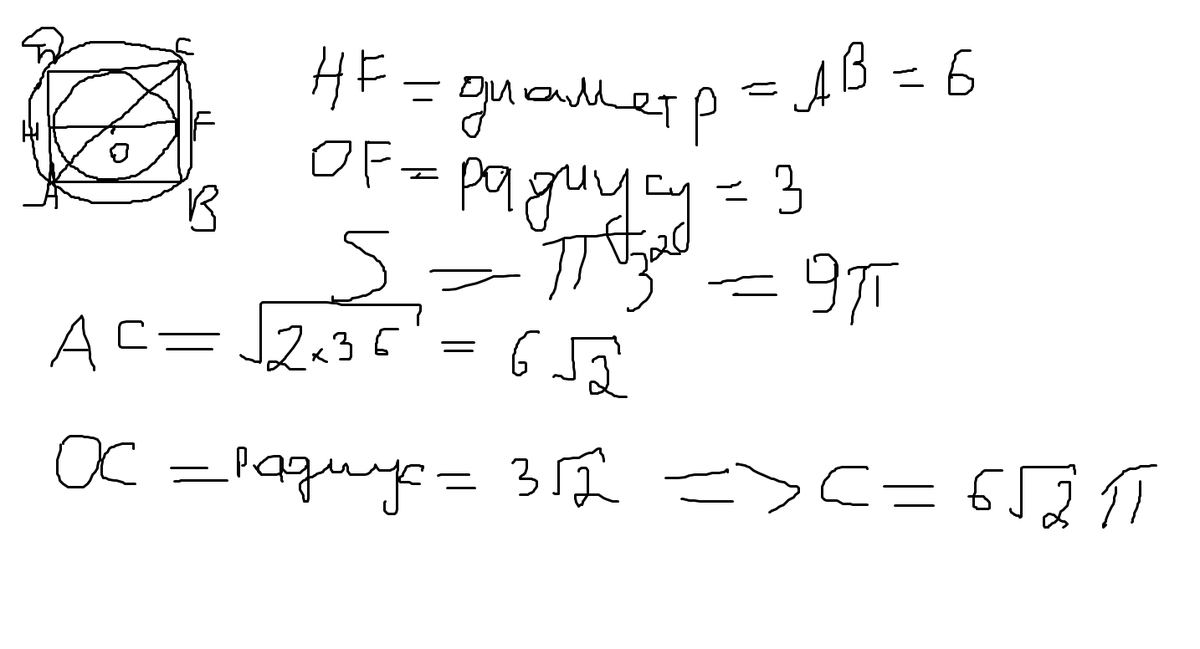 D C
H F
O
A B
HF = диаметр = AB = 6
OF = радиусу = 3
S = π 3² = 9π
AC = √2×36 = 6√2
OC = радиус = 3√2 => C = 6√2 π